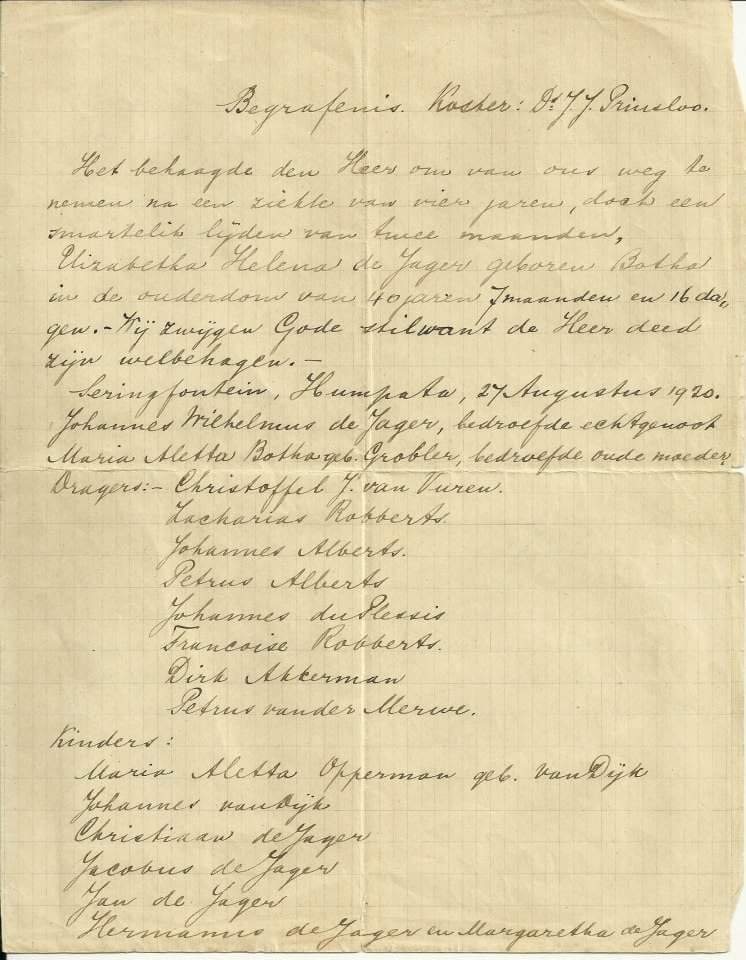 Begrafenis. Koster: Ds J. J. Prinsloo.
Het behaagde den Heer om van ons weg te
nemen na een ziekte van vier jaren, doch een
smartelik lijden van twee maanden,
Elizabetha Helena de Jager geboren Botha
in de ouderdom van 40 jaren 7 maanden en 16 da„
gen. - Wij zwijgen Gode stil want de Heer deed
zijn welbehagen. -
Seringfontein, Humpata, 27 Augustus 1920.
Johannes Wilhelmus de Jager, bedroefde echtgenoot
Maria Aletta Botha geb. Grobler, bedroefde oude moeder,
Dragers: - Christoffel J. van Vuren.
Zacharias Robberts.
Johannes Alberts.
Petrus Alberts
Johannes du Plessis
Francoise Robberts.
Dirk Akkerman
Petrus van der Merwe.
Kinders:
Maria Aletta Opperman geb. van Dijk
Johannes van Dijk
Christiaan de Jager
Jacobus de Jager
Jan de Jager
Hermanus de Jager en Margaretha de Jager